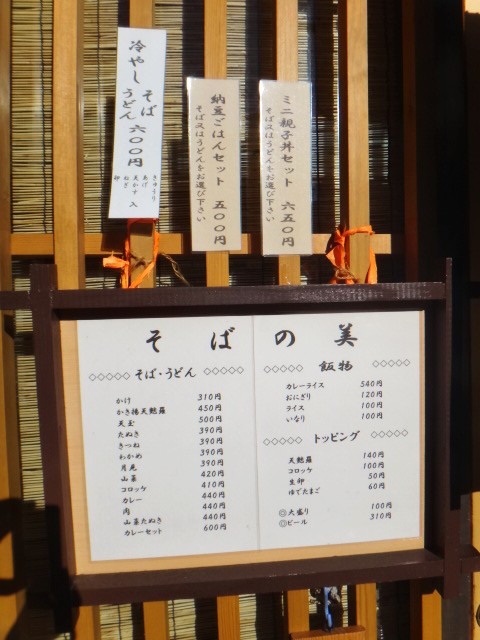 冷やし そば うどん 六〇〇円
きゅうり
あげ
天かす 入
ねぎ
卵
納豆ごはんセット 五〇〇円
そば又はうどんをお選び下さい
ミニ親子丼セット 六五〇円
そば又はうどんをお選び下さい
そばの美
◇◇◇◇◇そば・うどん◇◇◇◇◇
かけ 310円
かき揚天麩羅 450円
天玉 500円
たぬき 390円
きつね 390円
わかめ 390円
月見 390円
山菜 420円
コロッケ 410円
カレー 440円
肉 440円
山菜たぬき 440円
カレーセット 600円
◇◇◇◇◇ 飯物 ◇◇◇◇◇
カレーライス 540円
おにぎり 120円
ライス 100円
いなり 100円
◇◇◇◇◇ トッピング ◇◇◇◇◇
天麩羅 140円
コロッケ 100円
生卵 50円
ゆでたまご 60円
◎大盛り 100円
◎ビール 310円